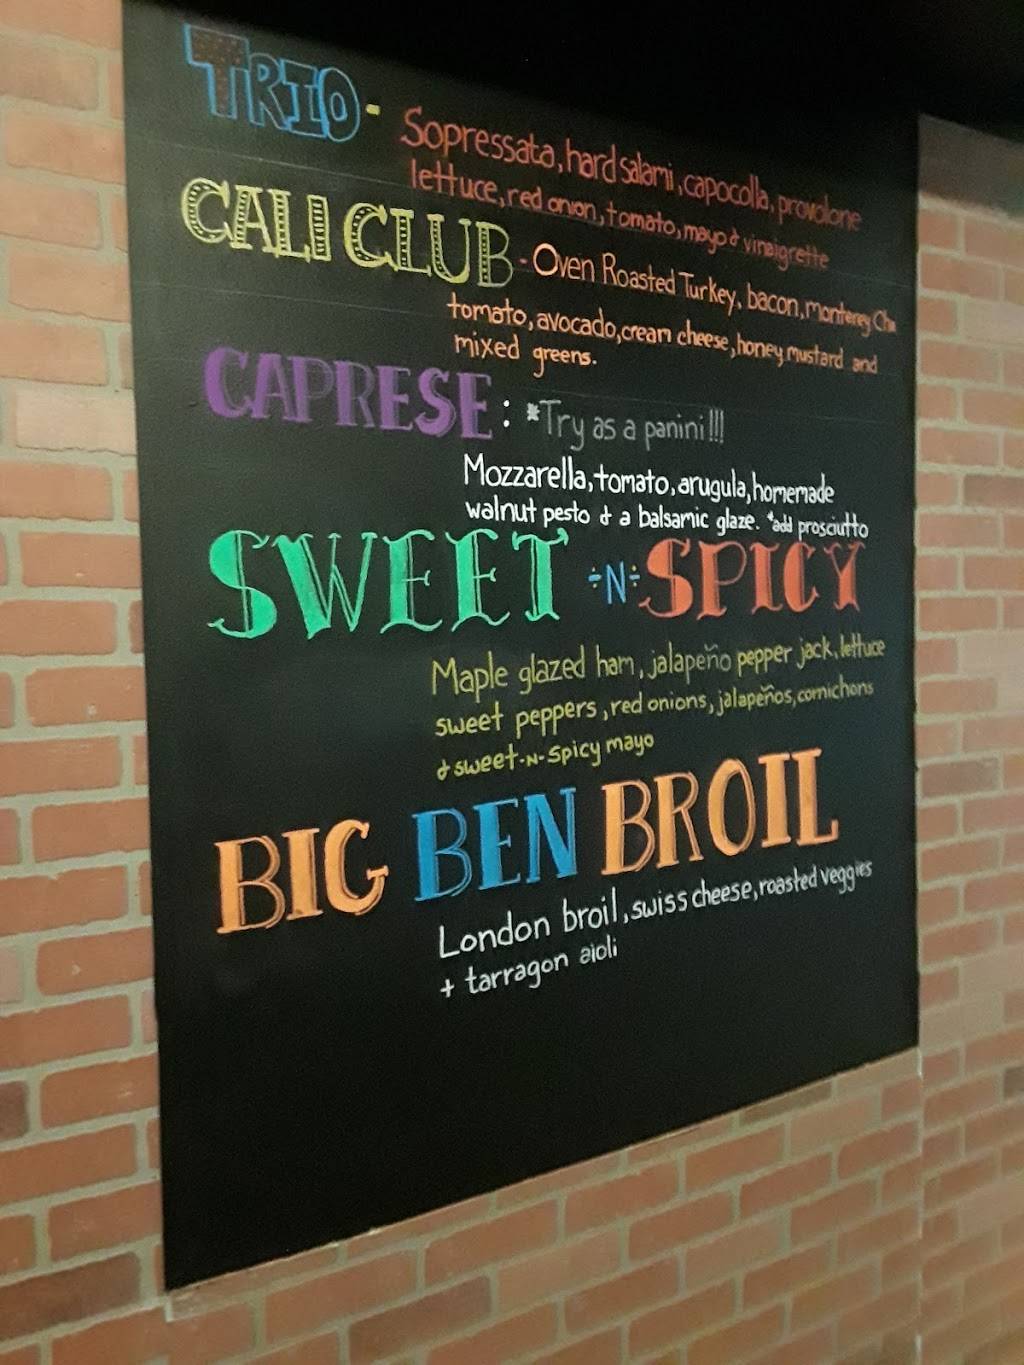 TRIO - Sopressata, hard salami, capocolla, provolone
lettuce, red onion, tomato, mayo & vinaigrette
CALI CLUB - Oven Roasted Turkey, bacon, monterey
tomato, avocado, cream cheese, honey mustard and
mixed greens.
CAPRESE : *Try as a panini!!!
Mozzarella, tomato, arugula, homemade
walnut pesto & a balsamic glaze. *add prosciutto
SWEET -N- SPICY
Maple glazed ham, jalapeño pepper jack, lettuce
sweet peppers, red onions, jalapeños, cornichons
& sweet-N-Spicy mayo
BIG BEN BROIL
London broil, swiss cheese, roasted veggies
+ tarragon aioli